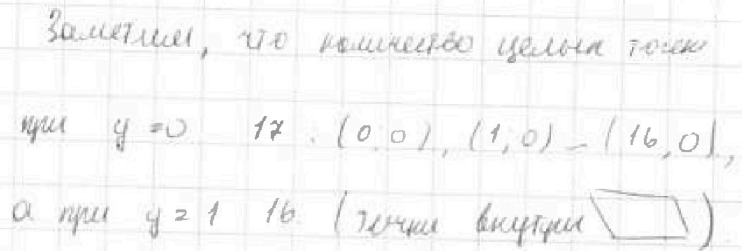 Заметим, что количество целых точек
при y=0 17 : (0,0), (1,0) – (16,0),
а при y=1 16 (точки внутри )